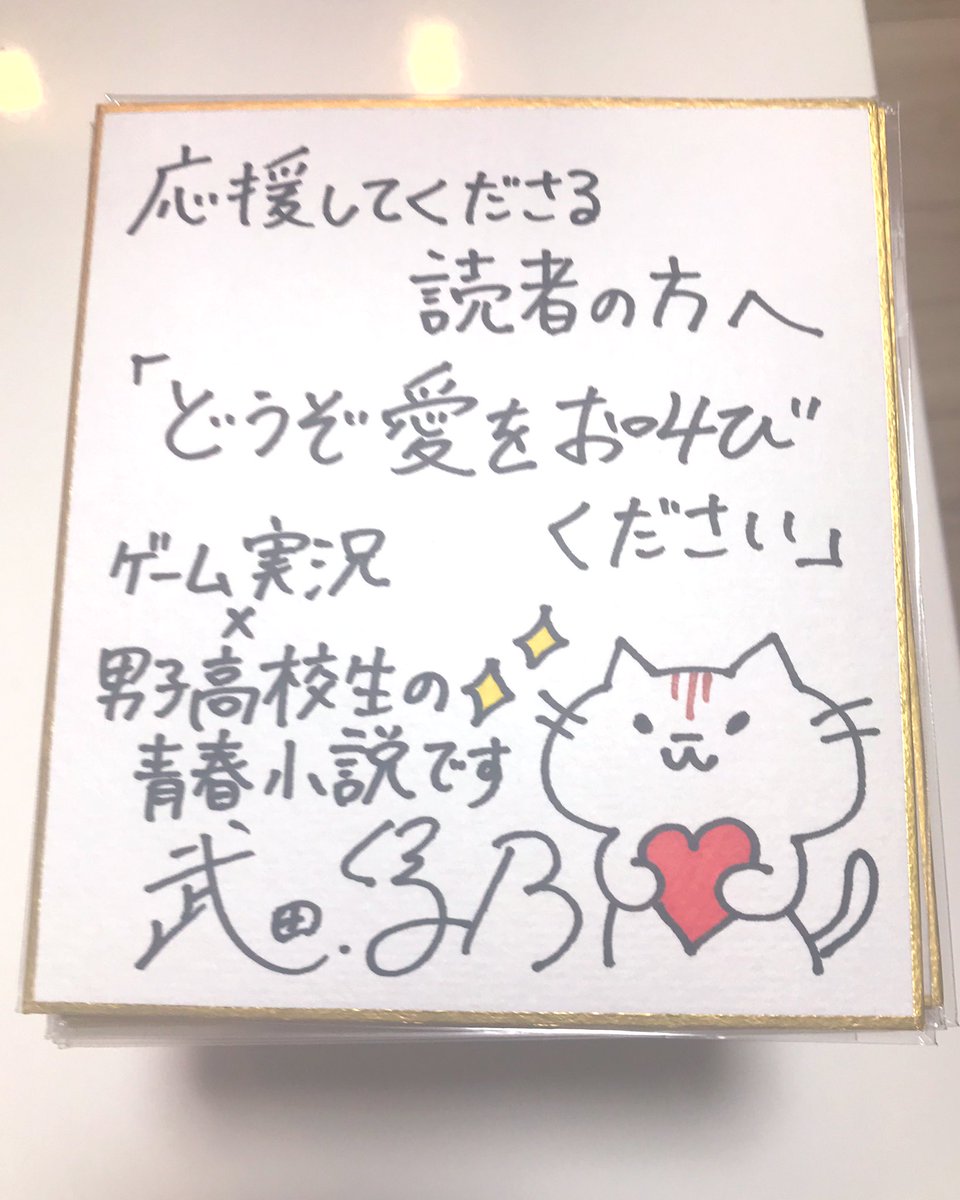 応援してくださる
読者の方へ
「どうぞ愛をお叫び
ください」
ゲーム実況
×
男子高校生の
青春小説です
武田綾乃